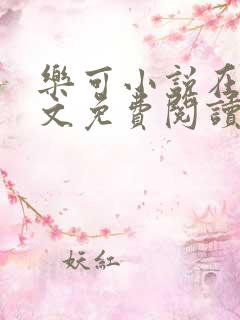 樂可小說在
文免費閱讀
妖紅